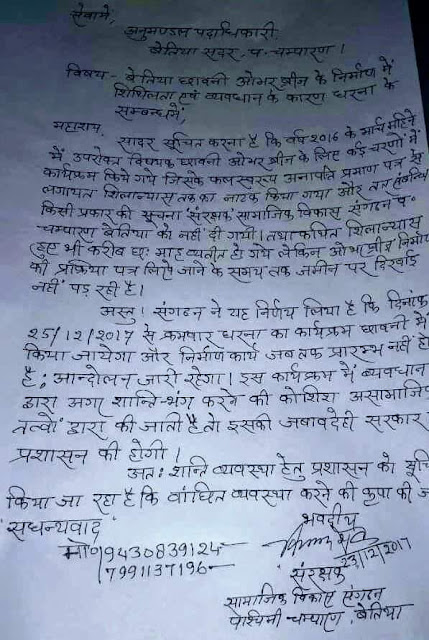 सेवामें,
अनुमण्डल पदाधिकारी,
बेतिया सदर, प. चम्पारण।
विषय - बेतिया छावनी ओभर ब्रीज के निर्माण में
शिथिलता एवं व्यवधान के कारण धरना के
सम्बन्ध में,
महाशय,
सादर सूचित करना है कि वर्ष 2016 के मार्च महिने
में उपरोक्त विषयक छावनी ओभर ब्रीज के लिए कई चरणों में
कार्यक्रम किये गये जिसके फलस्वरूप अनापति प्रमाण पत्र से
लगायत शिलान्यास तक का नाटक किया गया और
किसी प्रकार की सूचना संरक्षक सामाजिक विकास संगठन प.
चम्पारण बेतिया को नहीं दी गयी। तथा कथित शिलान्यास
हुए भी करीब छः माह व्यतीत हो गये लेकिन ओभर ब्रीज निर्माण
की प्रक्रिया पत्र लिखे जाने के समय तक जमीन पर दिखाई
नहीं पड़ रही है।
अस्तु। संगठन ने यह निर्णय लिया है कि दिनांक
25/12/2017 से क्रमवार धरना का कार्यक्रम छावनी में
किया जायेगा और निर्माण कार्य जबतक प्रारम्भ नहीं हो
है; आन्दोलन जारी रहेगा। इस कार्यक्रम में व्यवधान
द्वारा अगर शान्ति-भंग करने की कोशिश असामाजि
तत्वों द्वारा की जाती है तो इसकी जबावदेही सरकार
प्रशासन की होगी।
अतः शान्ति व्यवस्था हेतु प्रशासन को सूचि
किया जा रहा है कि वांछित व्यवस्था करने की कृपा की ज
सधन्यवाद
भवदीय
मो० 9430839124
7991137196
23/12/2017
संरक्षक
सामाजिक विकास संगठन
पश्चिमी चम्पारण, बेतिया